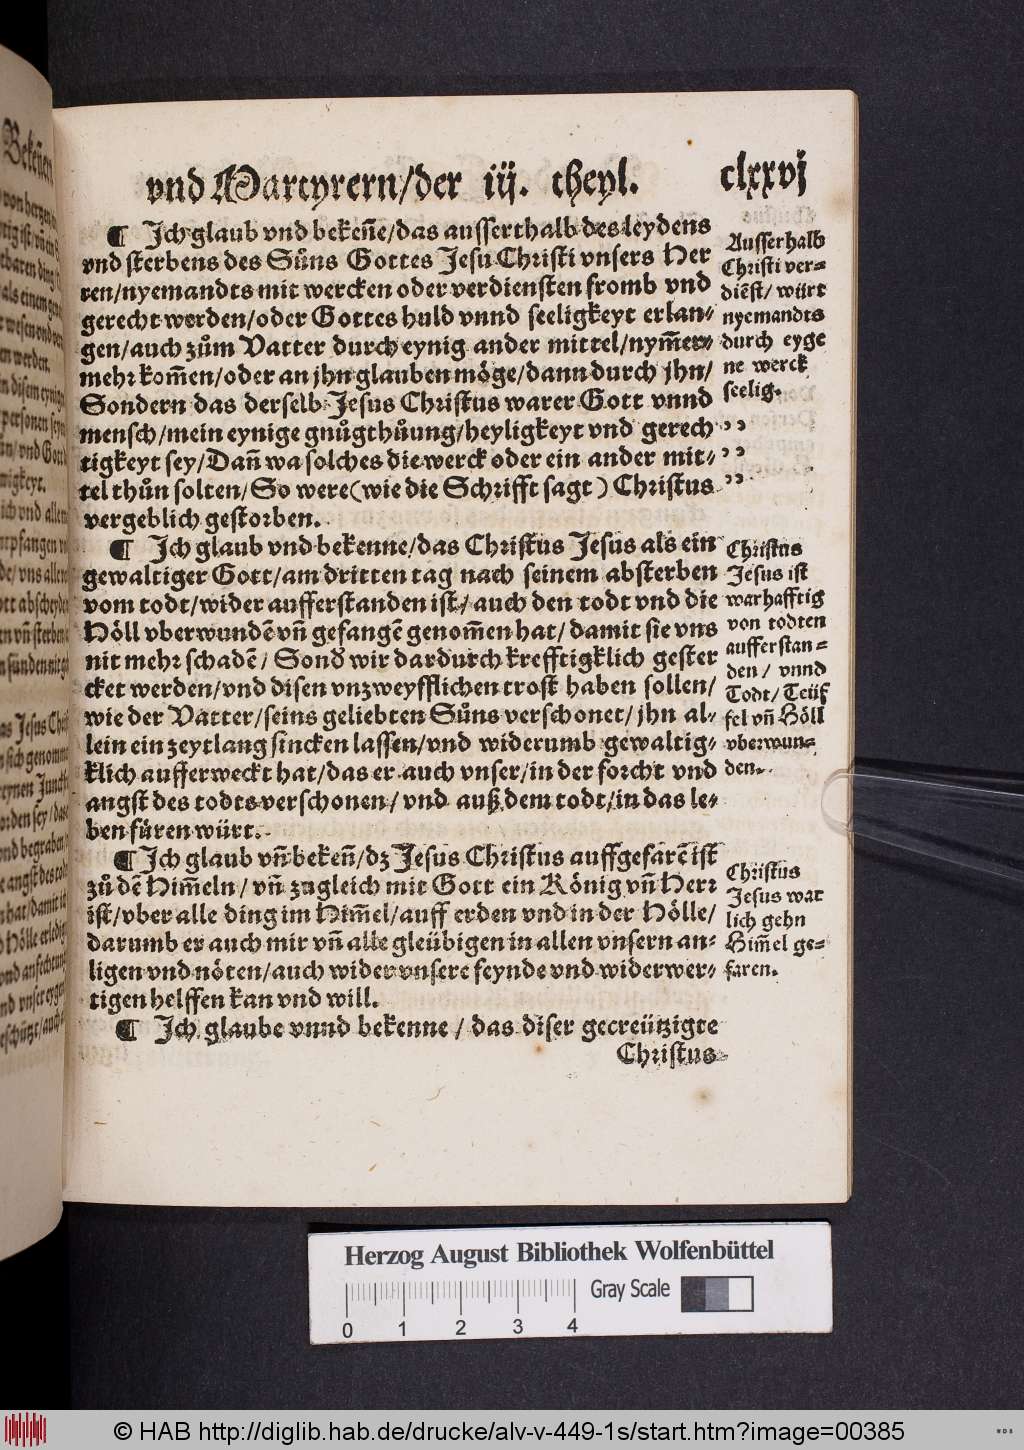 vnd Martyrern/der iij. theyl.
clxxvj
¶ Ich glaub vnd bekeñe/das ausserthalb des leydens
vnd sterbens des Sůns Gottes Jesu Christi vnsers Her
ren/nyemandts mit wercken oder verdiensten fromb vnd
gerecht werden/oder Gottes huld vnnd seeligkeyt erlan-
gen/auch zům Vatter durch eynig ander mittel/nym̃er-
mehr kom̃en/oder an jhn glauben möge/dann durch jhn/
Sondern das derselb Jesus Christus warer Gott vnnd
mensch/mein eynige gnůgthůung/heyligkeyt vnd gerech
tigkeyt sey/Dañ wa solches die werck oder ein ander mit-
tel thůn solten/So were(wie die Schrifft sagt) Christus
vergeblich gestorben.
Ausserhalb
Christi ver-
diẽst/ würt
nyemandts
durch eyge
ne werck
seelig.
¶ Ich glaub vnd bekenne/das Christus Jesus als ein
gewaltiger Gott/am dritten tag nach seinem absterben
vom todt/wider aufferstanden ist/auch den todt vnd die
Höll vberwundẽ vñ gefangẽ genom̃en hat/damit sie vns
nit mehr schadẽ/ Sond wir dardurch krefftigklich gester
cket werden/vnd disen vnzweyfflichen trost haben sollen/
wie der Vatter/seins geliebten Sůns verschonet/ jhn al-
lein ein zeytlang sincken lassen/vnd widerumb gewaltig-
klich aufferweckt hat/das er auch vnser/in der forcht vnd
angst des todts verschonen/ vnd auß dem todt/in das le-
ben füren würt.
Christus
Jesus ist
warhafftig
von todten
aufferstan-
den/ vnnd
Todt/Teüf
fel vñ Höll
vberwun-
den.
¶ Ich glaub vñ bekeñ/dz Jesus Christus auffgefarẽ ist
zů dẽ Him̃eln/ vñ zugleich mit Gott ein König vñ Herr
ist/vber alle ding im Him̃el/auff erden vnd in der Hölle/
darumb er auch mir vñ alle gleübigen in allen vnsern an-
ligen vnd nöten/auch wider vnsere feynde vnd widerwer-
tigen helffen kan vnd will.
Christus
Jesus war
lich gehn
Him̃el ge-
faren.
¶ Ich glaube vnnd bekenne / das diser gecreützigte
Christus
Herzog August Bibliothek Wolfenbüttel
Gray Scale
0 1 2 3 4
© HAB http://diglib.hab.de/drucke/alv-v-449-1s/start.htm?image=00385